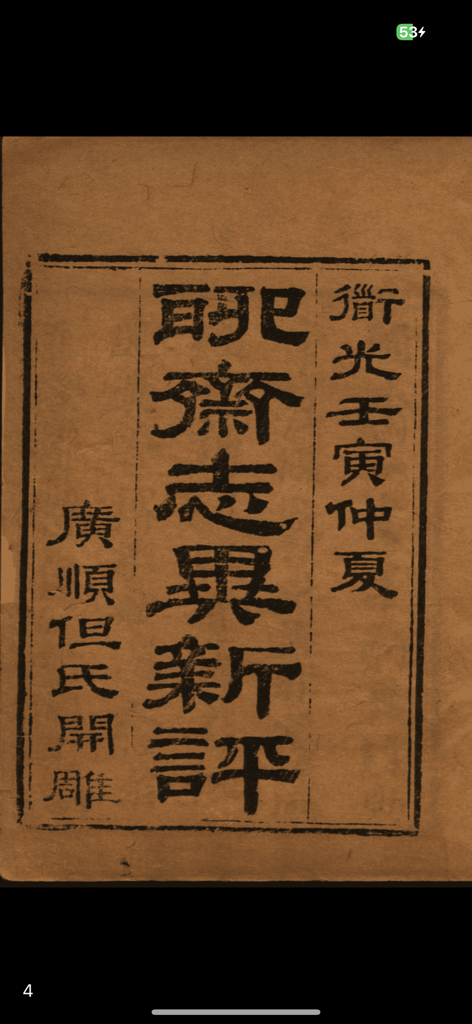 53
衟光壬寅仲夏
聊齋志異新評
廣順但氏開雕
4